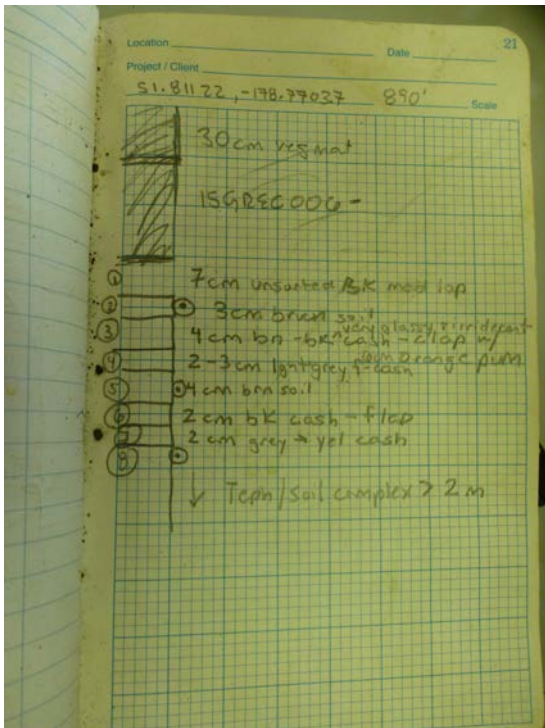 Location Date 21
Project / Client
51.81122, -178.77037 890' Scale
30 cm veg mat
15GREC006-
① 7 cm unsorted BK med lap
② 3 cm brwn soil
very glassy, rim deposit
③ 4 cm bn - bk cash - clap w/
orange pum
④ 2-3 cm lght grey f-cash
⑤ 4 cm brn soil
⑥ 2 cm bk cash - flap
⑦ 2 cm grey → yel cash
⑧
↓ Teph/soil complex > 2 m